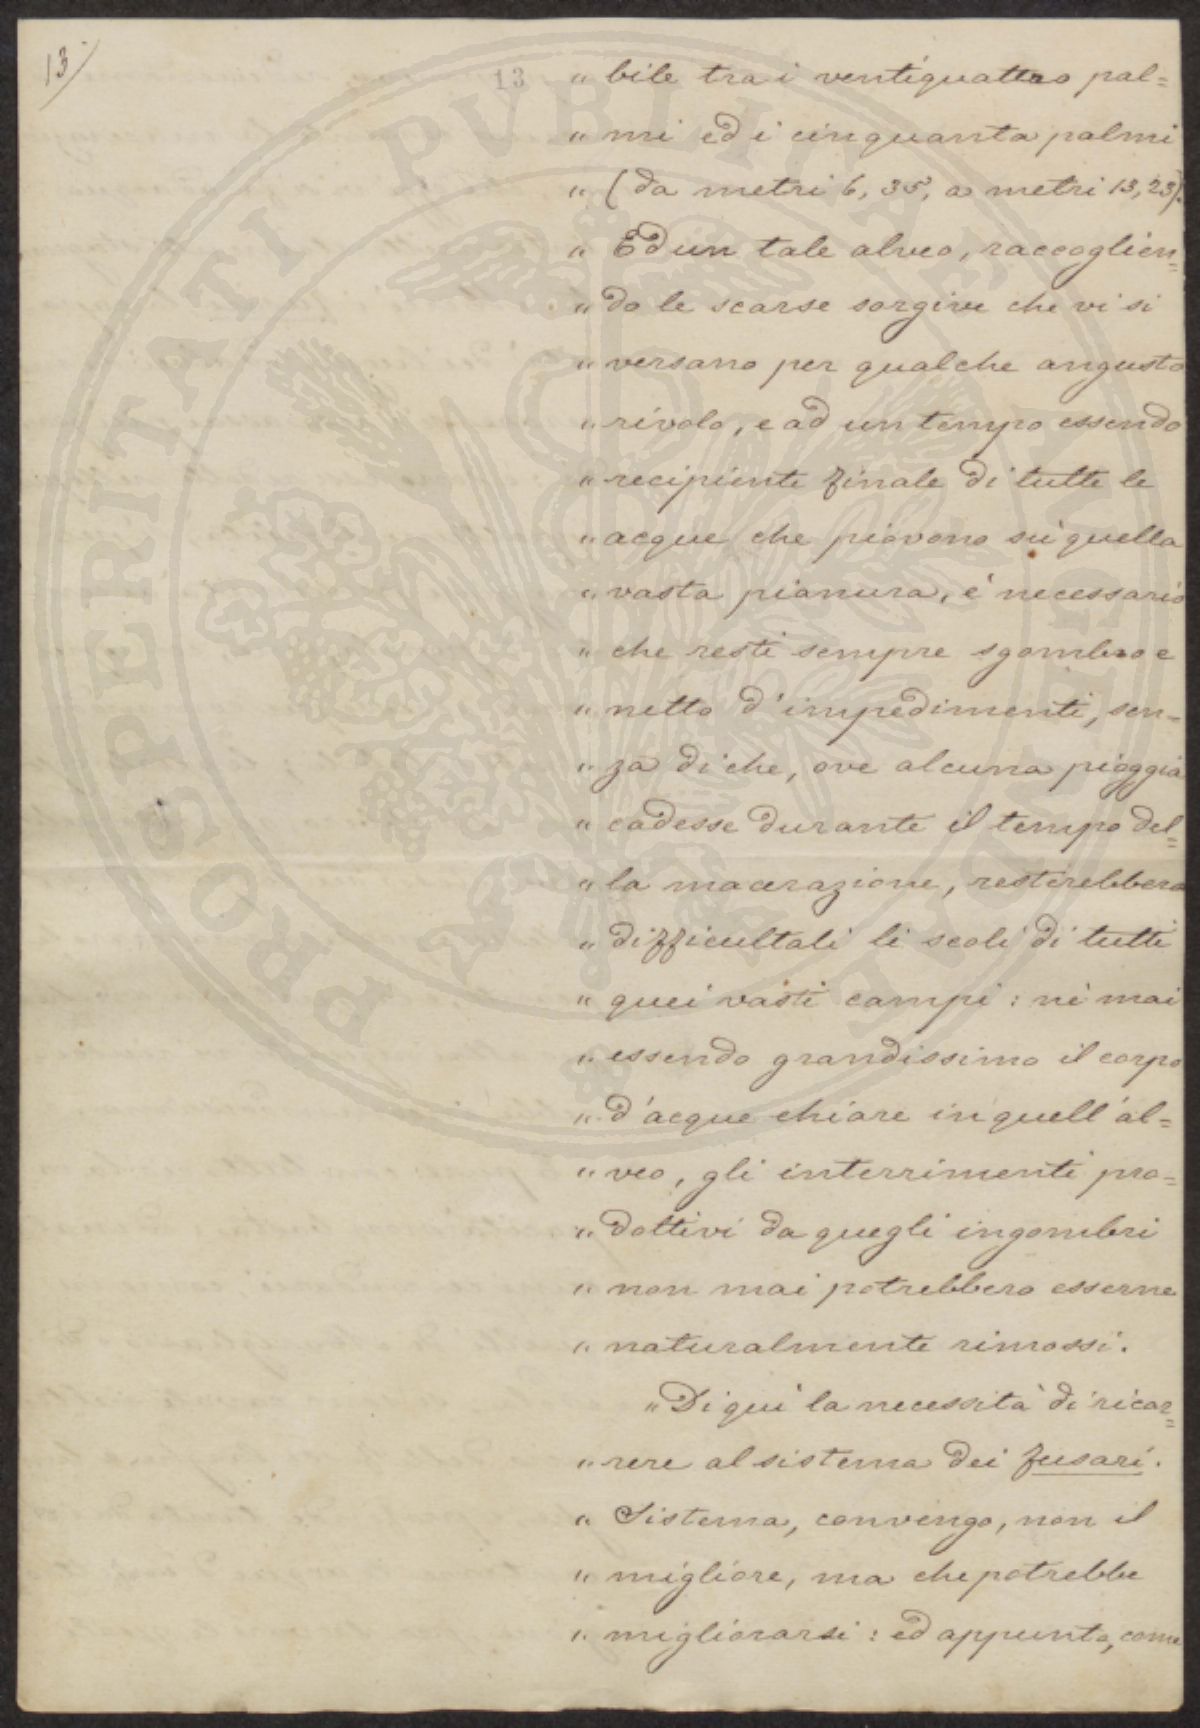 13
13
" bile tra i ventiquattro pal=
" mi ed i cinquanta palmi
" (da metri 6, 35, a metri 13, 23).
" Ed un tale alveo, raccoglien=
" do le scarse sorgive che vi si
" versano per qualche angusto
" rivolo, e ad un tempo essendo
" recipiente finale di tutte le
" acque che piovono sù quella
" vasta pianura, è necessario
" che resti sempre sgombro e
" netto d'impedimenti, sen-
" za di che, ove alcuna pioggia
" cadesse durante il tempo del=
" la macerazione, resterebbero
" difficultali li scoli di tutti
" quei vasti campi: nè mai
" essendo grandissimo il corpo
" d'acque chiare in quell'al=
" veo, gli interrimenti pro=
" dottivi da quegli ingombri
" non mai potrebbero esserne
" naturalmente rimossi.
" Di qui la necessità di ricor=
" rere al sistema dei fusari.
" Sistema, convengo, non il
" migliore, ma che potrebbe
" migliorarsi: ed appunto, come
PROSPERITATI PVBLICAE AVGENDAE